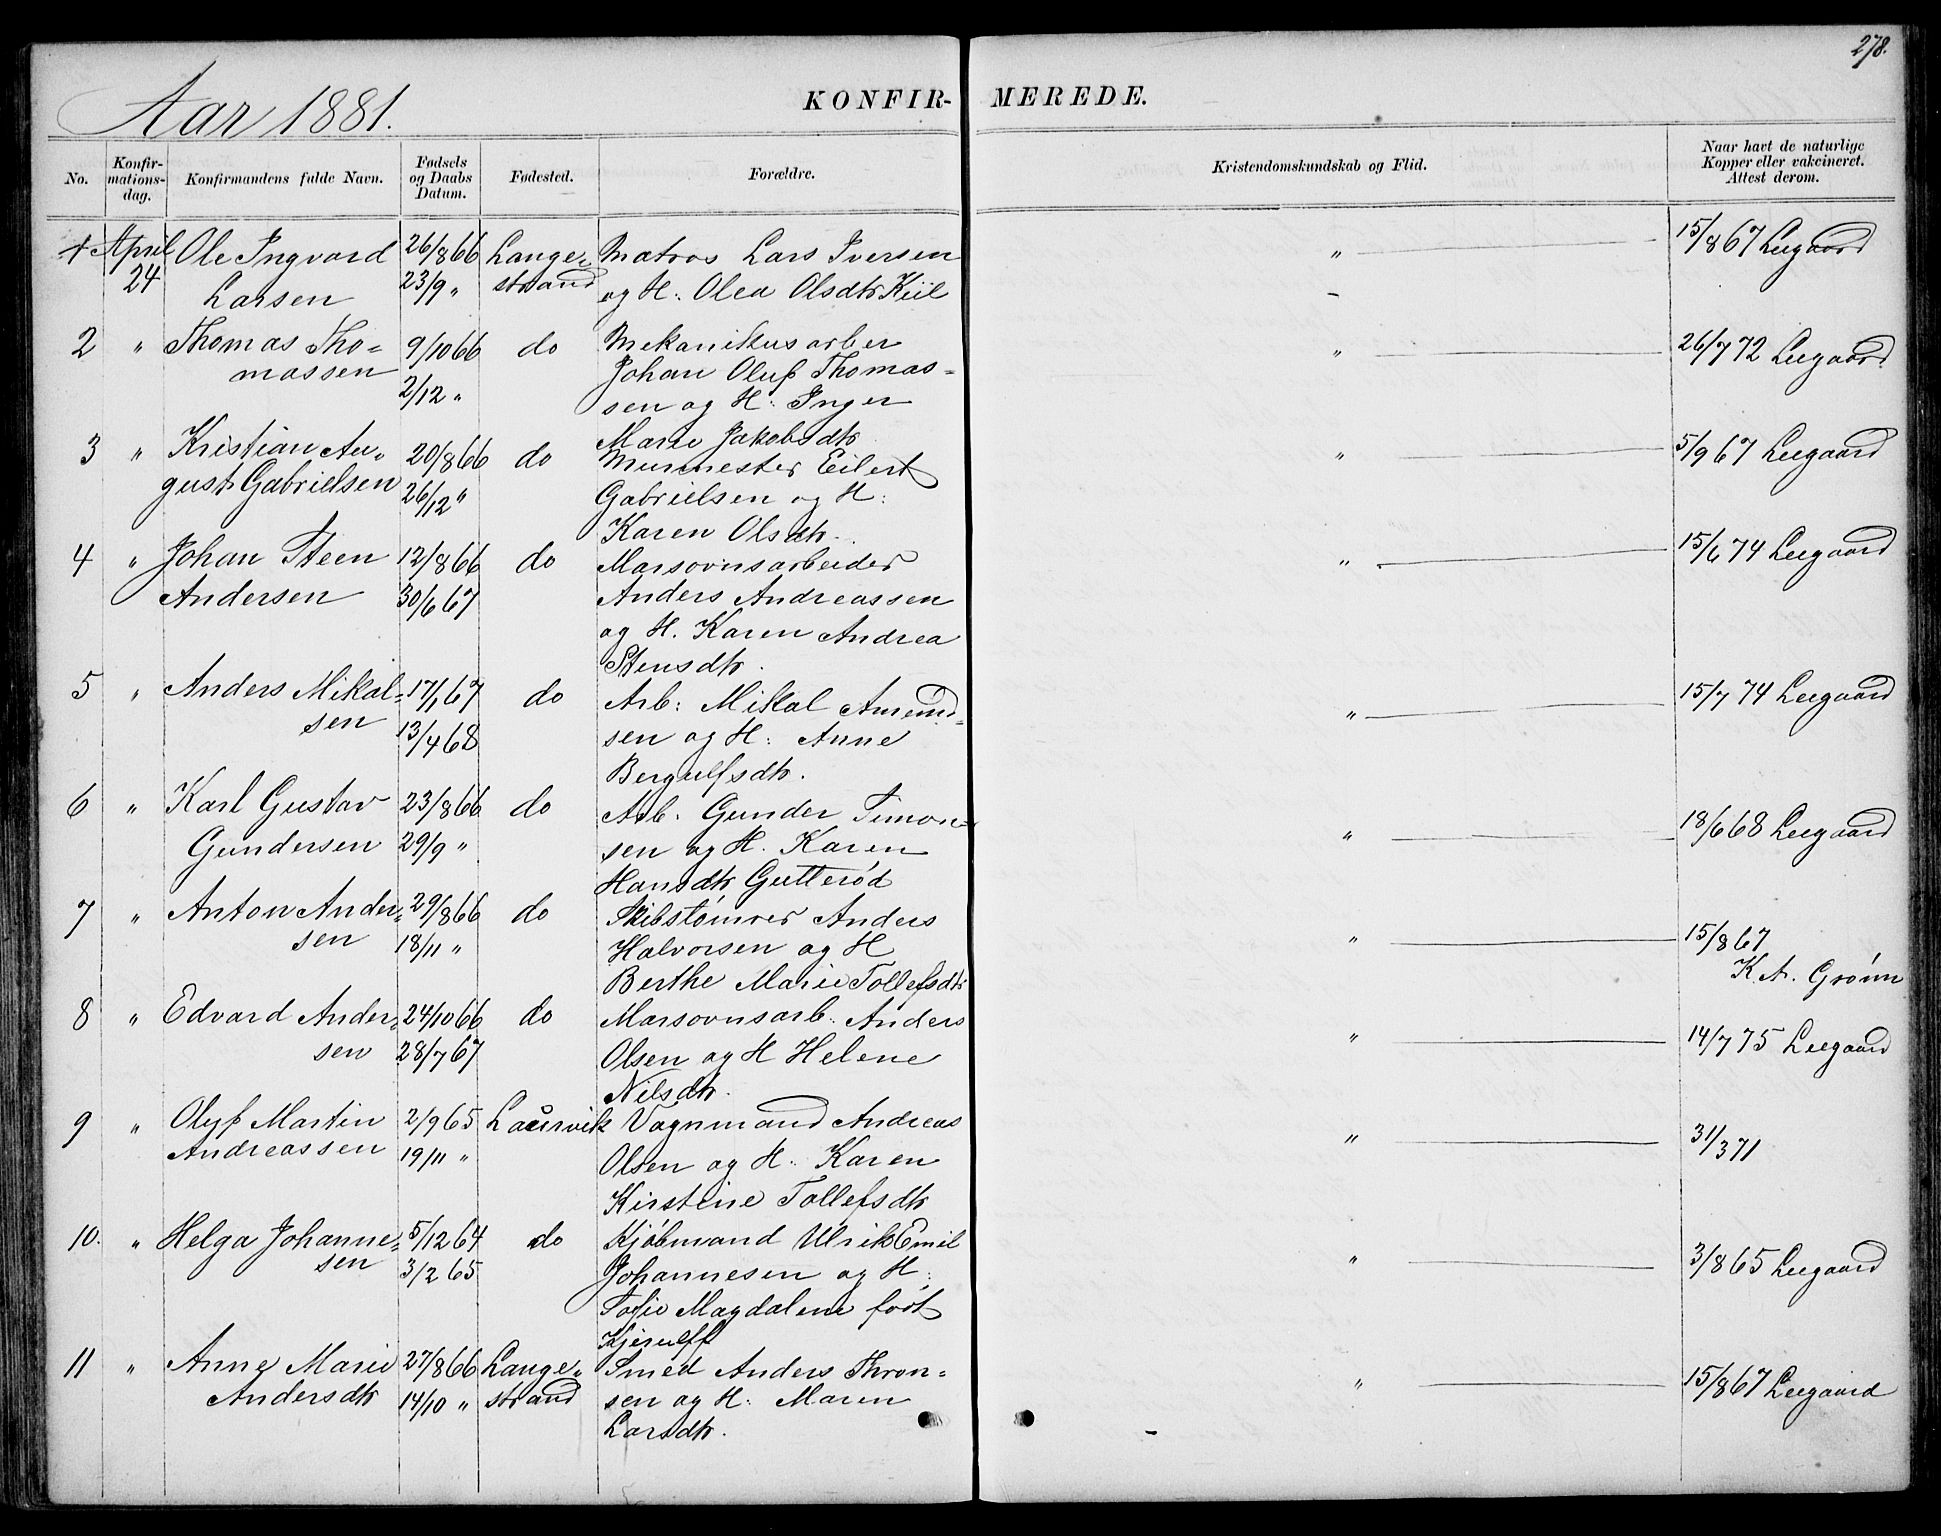 278.
Aar 1881.
KONFIR- MEREDE.
No.
Konfir-
mations-
dag.
Konfirmandens fulde Navn.
Fødsels
og Daabs
Datum.
Fødested.
Forældre.
Kristendomskundskab og Flid.
Naar havt de naturlige
Kopper eller vakcineret.
Attest derom.
1 April Ole Ingvard 26/8 66 Lange- Matros Lars Iversen " 15/8 67 Leegaard
24 Larsen 23/9 " strand og H: Olea Olsdtr Kiil
2 " Thomas Tho= 9/10 66 do Mekanikusarber " 26/7 72 Leegaard
massen 2/12 " Johan Oluf Thomas=
sen og H: Inger
Marie Jakobsdtr
3 " Kristian Au- 20/8 66 do Murmester Eilert " 5/9 67 Leegaard
gust Gabrielsen 26/12 " Gabrielsen og H:
Karen Olsdtr.
4 " Johan Steen 12/8 66 do Marsovnsarbeider " 15/6 74 Leegaard
Andersen 30/6 67 Anders Andreassen
og H. Karen Andrea
Stensdtr.
5 " Anders Mikal= 17/1 67 do Arb: Mikal Amund= " 15/7 74 Leegaard
sen 13/4 68 sen og H: Anne
Bergulfsdtr.
6 " Karl Gustav 23/8 66 do Arb. Gunder Simon= " 18/6 68 Leegaard
Gundersen 29/9 " sen og H. Karen
Hansdtr Gutterød
7 " Anton Ander= 29/8 66 do Skibstømrer Anders " 15/8 67
sen 18/11 " Halvorsen og H K. A. Grønn
Berthe Marie Tollefsdtr
8 " Edvard Ander= 24/10 66 do Marsovnsarb. Anders " 14/7 75 Leegaard
sen 28/7 67 Olsen og H Helene
Nilsdtr.
9 " Oluf Martin 2/9 65 Laurvik Vognmand Andreas " 31/3 71
Andreassen 19/11 " Olsen og H. Karen
Kirstine Tollefsdtr
10. " Helga Johanne= 5/12 64 do Kjøbmand Ulrik Emil " 3/8 65 Leegaard
sen 3/2 65 Johannesen og H:
Sofie Magdalene født
Kjerulff
11 " Anne Marie 27/8 66 Lange- Smed Anders Thron= " 15/8 67 Leegaard
Andersdtr 14/10 " strand sen og H. Maren
Larsdtr.